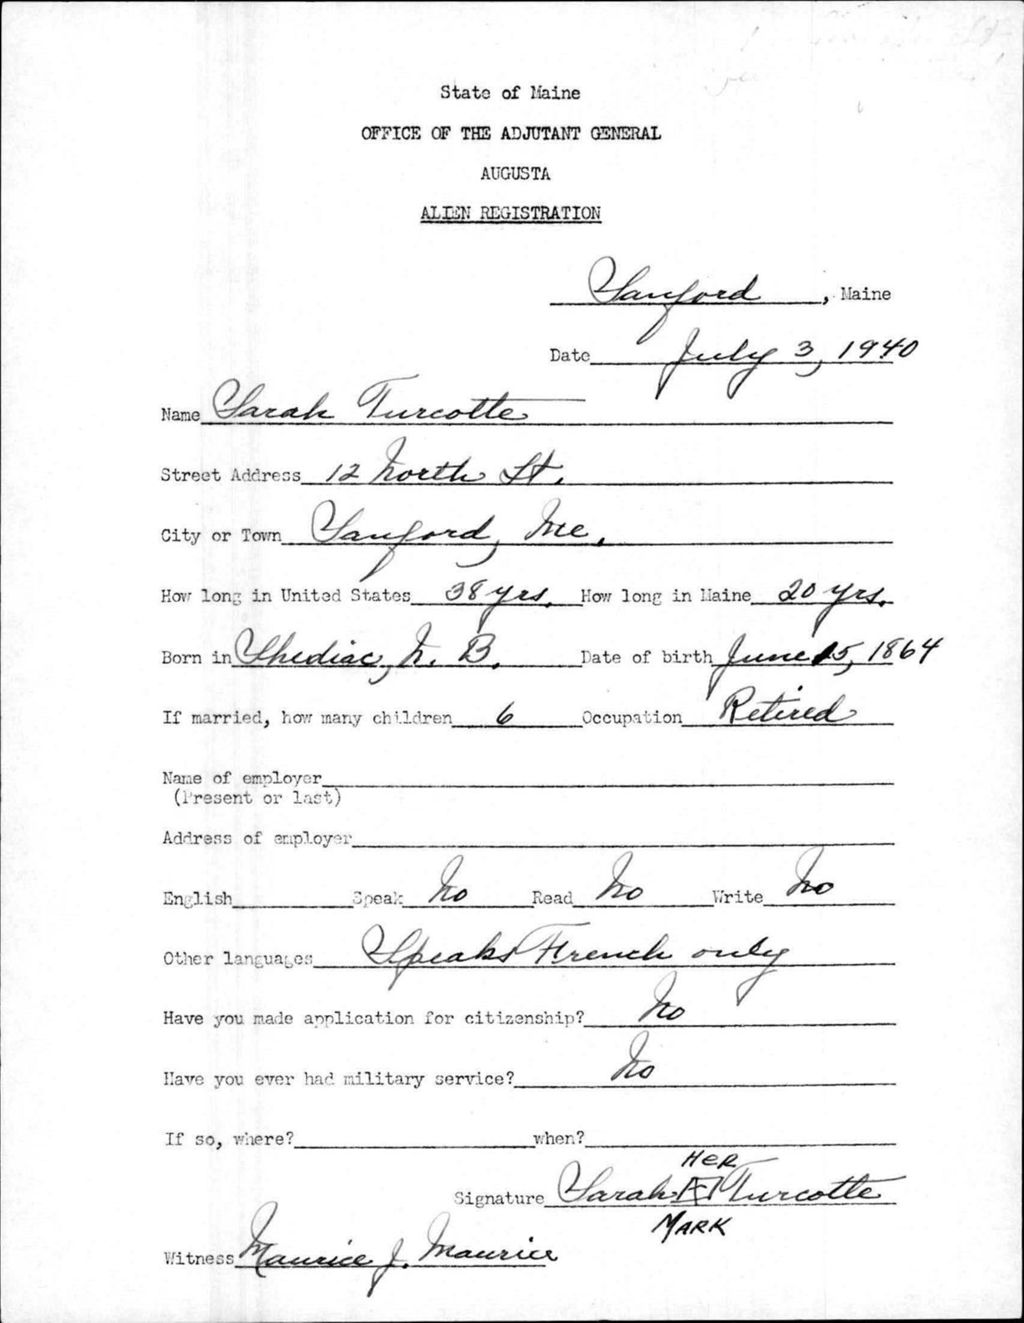 State of Maine
OFFICE OF THE ADJUTANT GENERAL
AUGUSTA
ALIEN REGISTRATION
Sanford, Maine
Date July 3, 1940
Name Sarah Turcotte
Street Address 12 North St.
City or Town Sanford, Me.
How long in United States 38 yrs. How long in Maine 20 yrs.
Born in Shediac, N. B. Date of birth June 15, 1864
If married, how many children 6 Occupation Retired
Name of employer
(Present or last)
Address of employer
English Speak No Read No Write No
Other languages Speaks French only
Have you made application for citizenship? No
Have you ever had military service? No
If so, where? when?
HER
Signature Sarah Turcotte
MARK
Witness Maurice J. Maurice